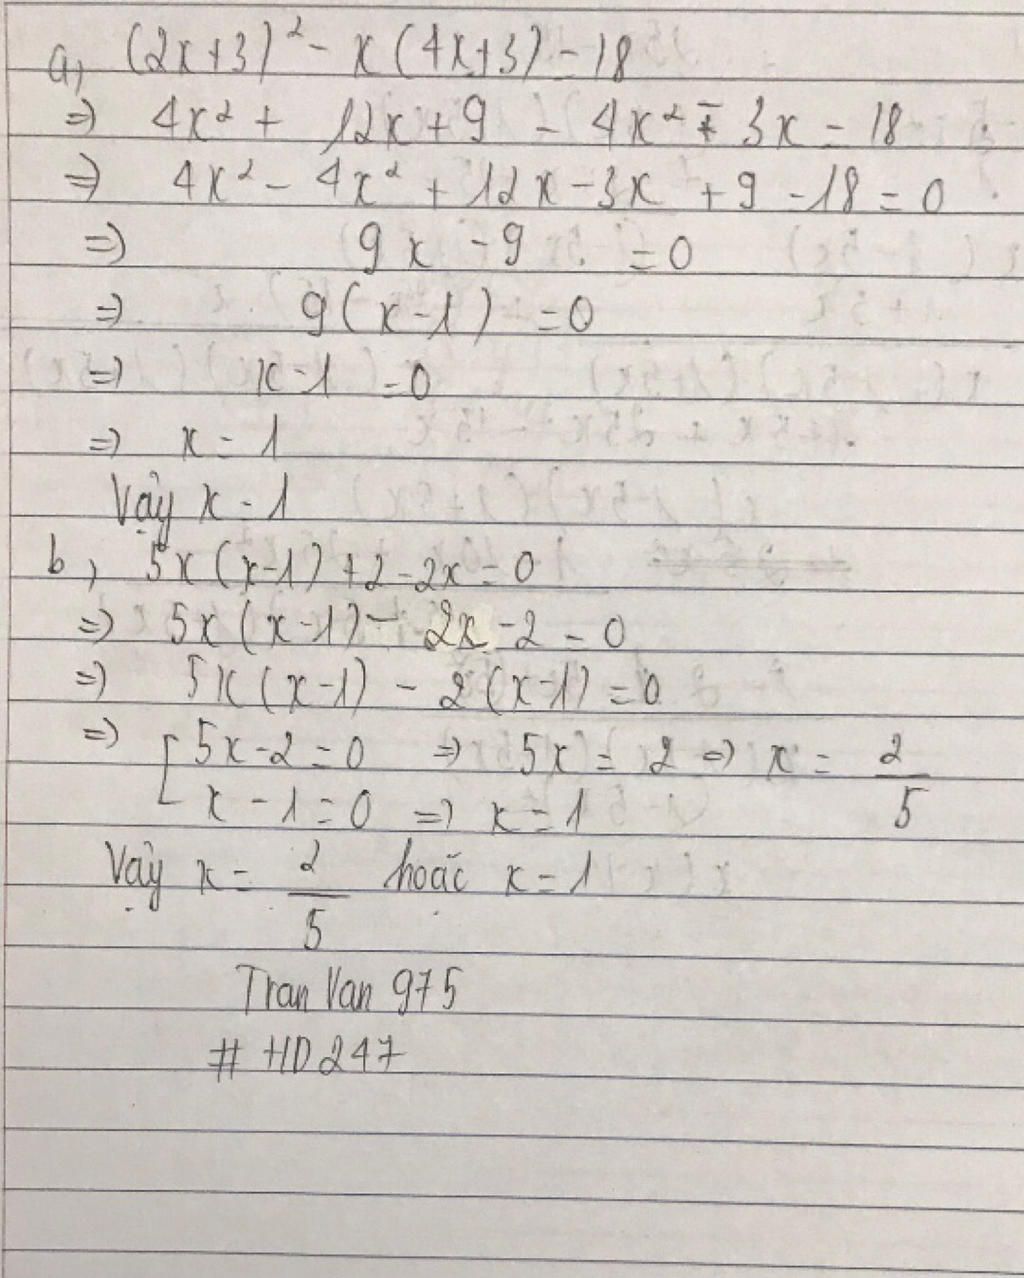 a, (2x+3)² - x(4x+3) = 18
=> 4x² + 12x + 9 - 4x² - 3x = 18
=> 4x² - 4x² + 12x - 3x + 9 - 18 = 0
=> 9x - 9 = 0
=> 9(x-1) = 0
=> x-1 = 0
=> x = 1
Vậy x = 1
b, 5x(x-1) + 2 - 2x = 0
=> 5x(x-1) - 2x - 2 = 0
=> 5x(x-1) - 2(x-1) = 0
=> [ 5x - 2 = 0 => 5x = 2 => x = 2/5
x - 1 = 0 => x = 1
Vậy x = 2/5 hoặc x = 1
Tran Van 975
# HD247